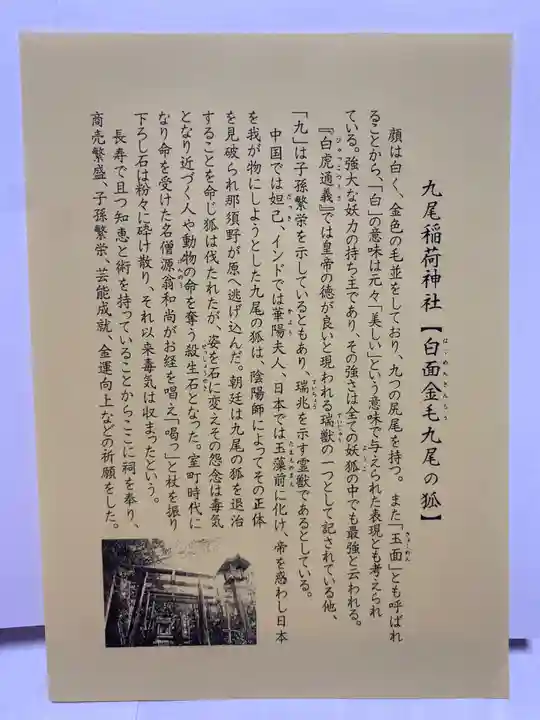 九尾稲荷神社【白面金毛九尾の狐】
はくめんきんもう
顔は白く、金色の毛並をしており、九つの尻尾を持つ。また「玉面」とも呼ばれ
ることから、「白」の意味は元々「美しい」という意味で与えられた表現とも考えられ
ている。強大な妖力の持ち主であり、その強さは全ての妖狐の中でも最強と云われる。
『白虎通義』では皇帝の徳が良いと現われる瑞獣の一つとして記されている他、
「九」は子孫繁栄を示しているともあり、瑞兆を示す霊獣であるとしている。
中国では妲己、インドでは華陽夫人、日本では玉藻前に化け、帝を惑わし日本
を我が物にしようとした九尾の狐は、陰陽師によってその正体
を見破られ那須野が原へ逃げ込んだ。朝廷は九尾の狐を退治
することを命じ狐は伐たれたが、姿を石に変えその怨念は毒気
となり近づく人や動物の命を奪う殺生石となった。室町時代に
なり命を受けた名僧源翁和尚がお経を唱え「喝っ」と杖を振り
下ろし石は粉々に砕け散り、それ以来毒気は収まったという。
長寿で且つ知恵と術を持っていることからここに祠を奉り、
商売繁盛、子孫繁栄、芸能成就、金運向上などの祈願をした。